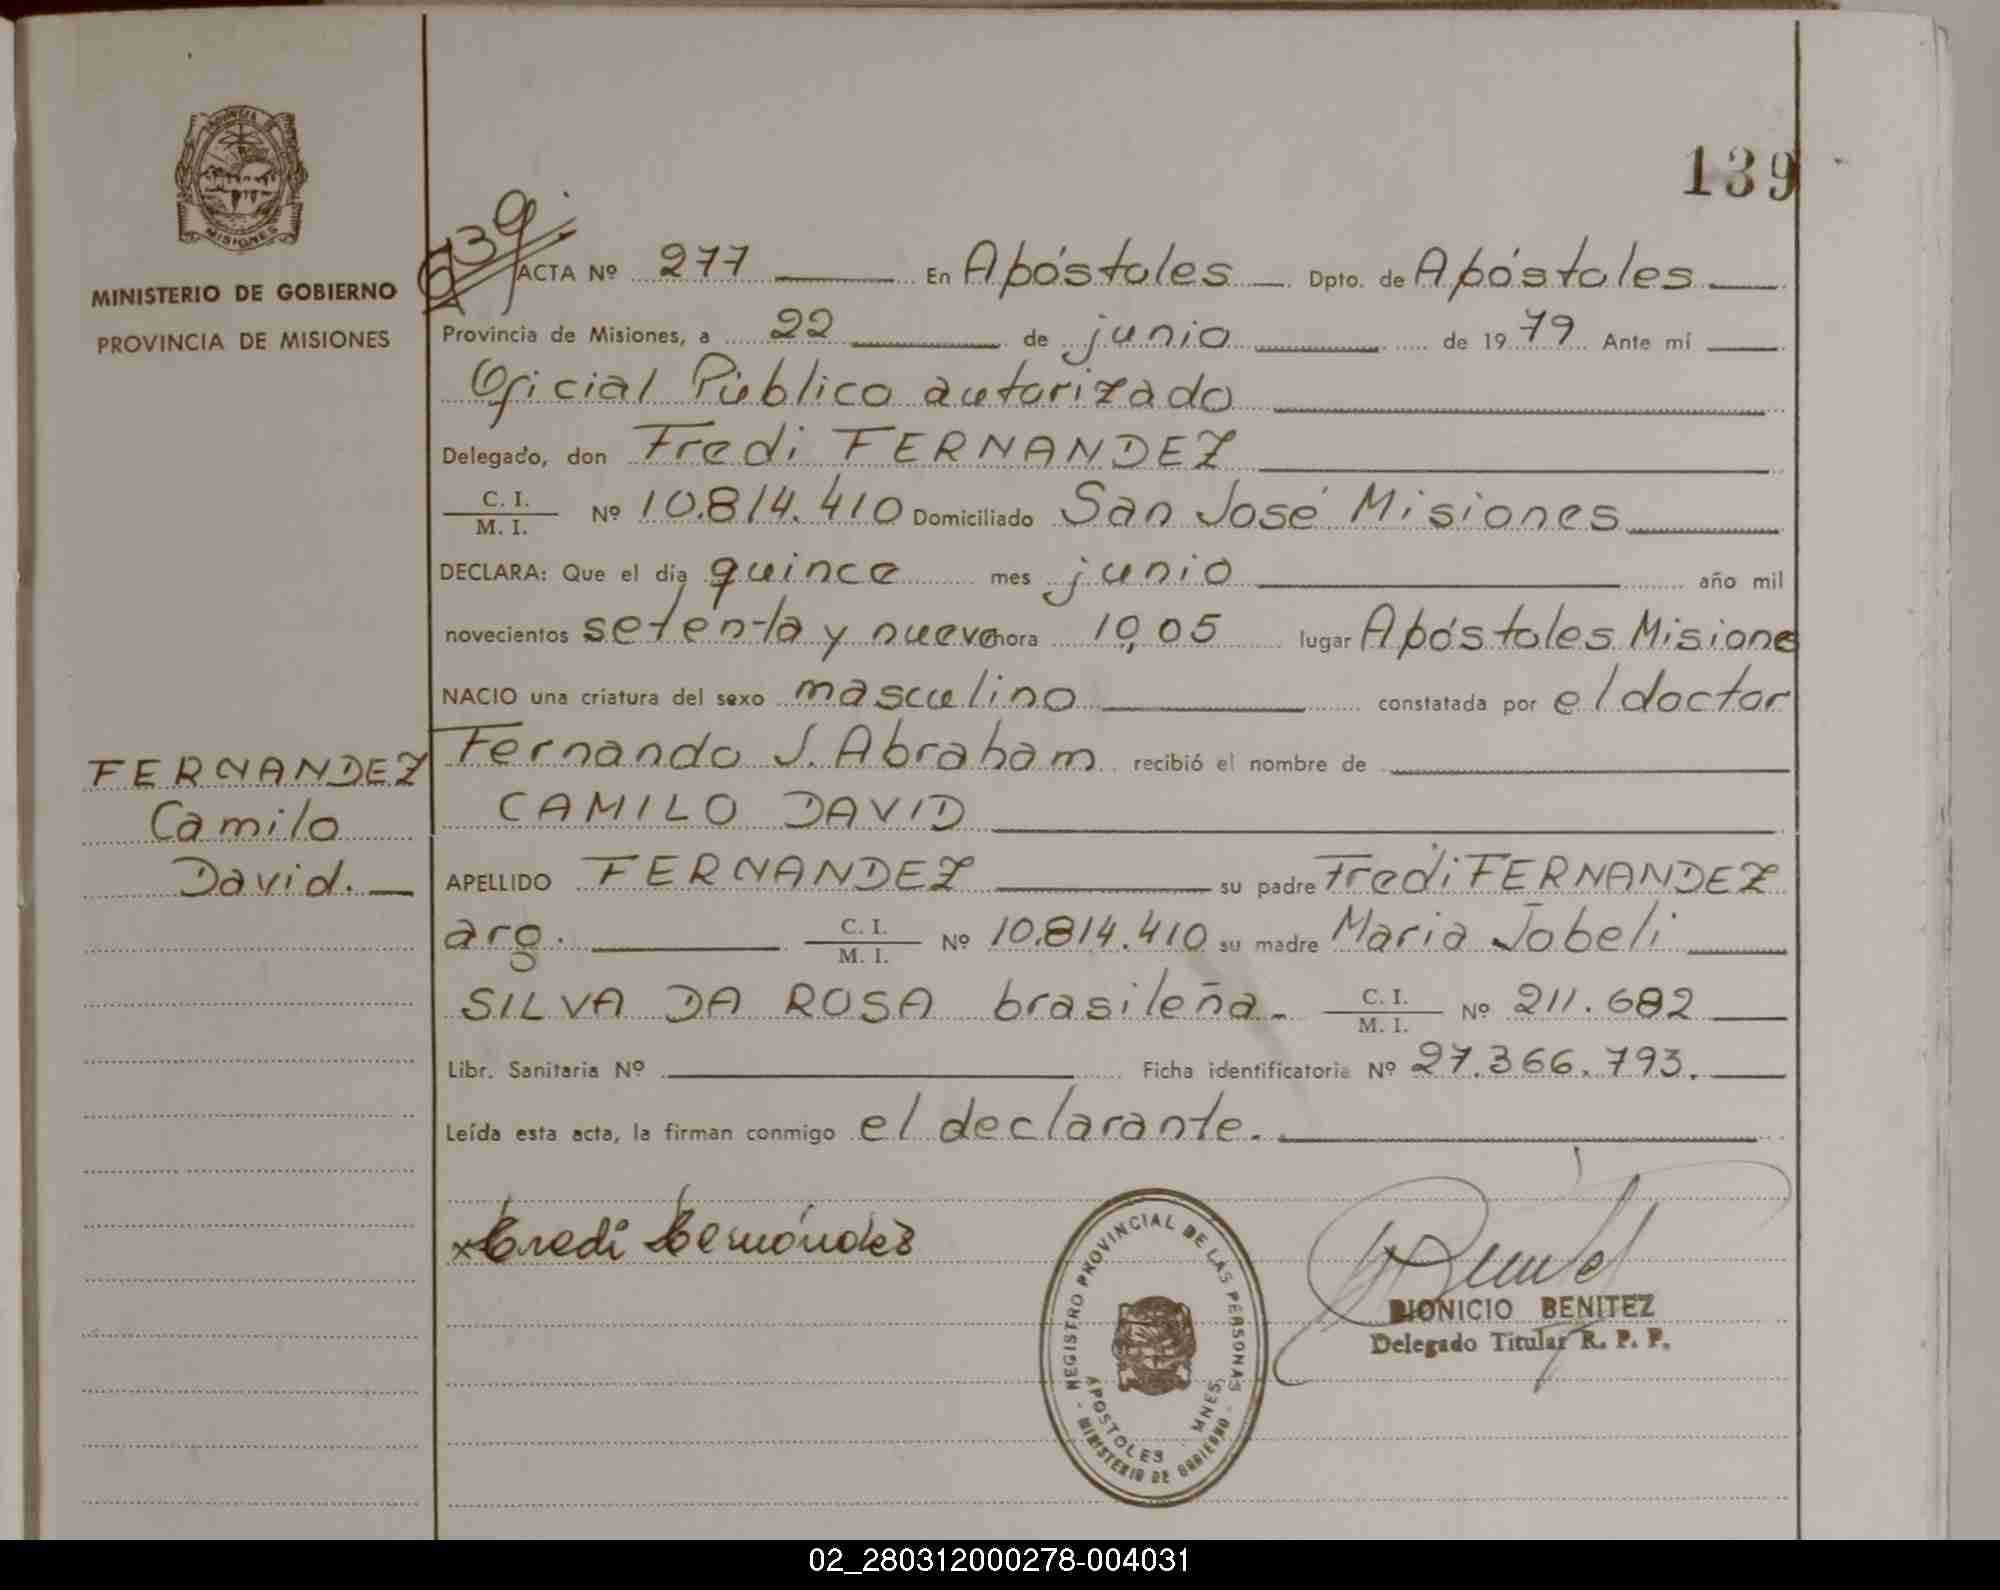 139
PROVINCIA DE
MISIONES
MINISTERIO DE GOBIERNO
PROVINCIA DE MISIONES
139
ACTA Nº 277 En Apóstoles Dpto. de Apóstoles
Provincia de Misiones, a 22 de junio de 1979 Ante mí
Oficial Público autorizado
Delegado, don Fredi FERNANDEZ
C. I.
M. I. Nº 10.814.410 Domiciliado San José Misiones
DECLARA: Que el día quince mes junio año mil
novecientos setenta y nueve hora 10,05 lugar Apóstoles Misiones
NACIO una criatura del sexo masculino constatada por el doctor
Fernando J. Abraham recibió el nombre de
CAMILO DAVID
FERNANDEZ
Camilo
David.
APELLIDO FERNANDEZ su padre Fredi FERNANDEZ
arg. C. I.
M. I. Nº 10.814.410 su madre Maria Jobeli
SILVA DA ROSA brasileña. C. I.
M. I. Nº 211.682
Libr. Sanitaria Nº Ficha identificatoria Nº 27.366.793.
Leída esta acta, la firman conmigo el declarante.
x Fredi Fernández
REGISTRO PROVINCIAL DE LAS PERSONAS
APOSTOLES MNES
- MINISTERIO DE GOBIERNO -
DIONICIO BENITEZ
Delegado Titular R. P. P.
02_280312000278-004031